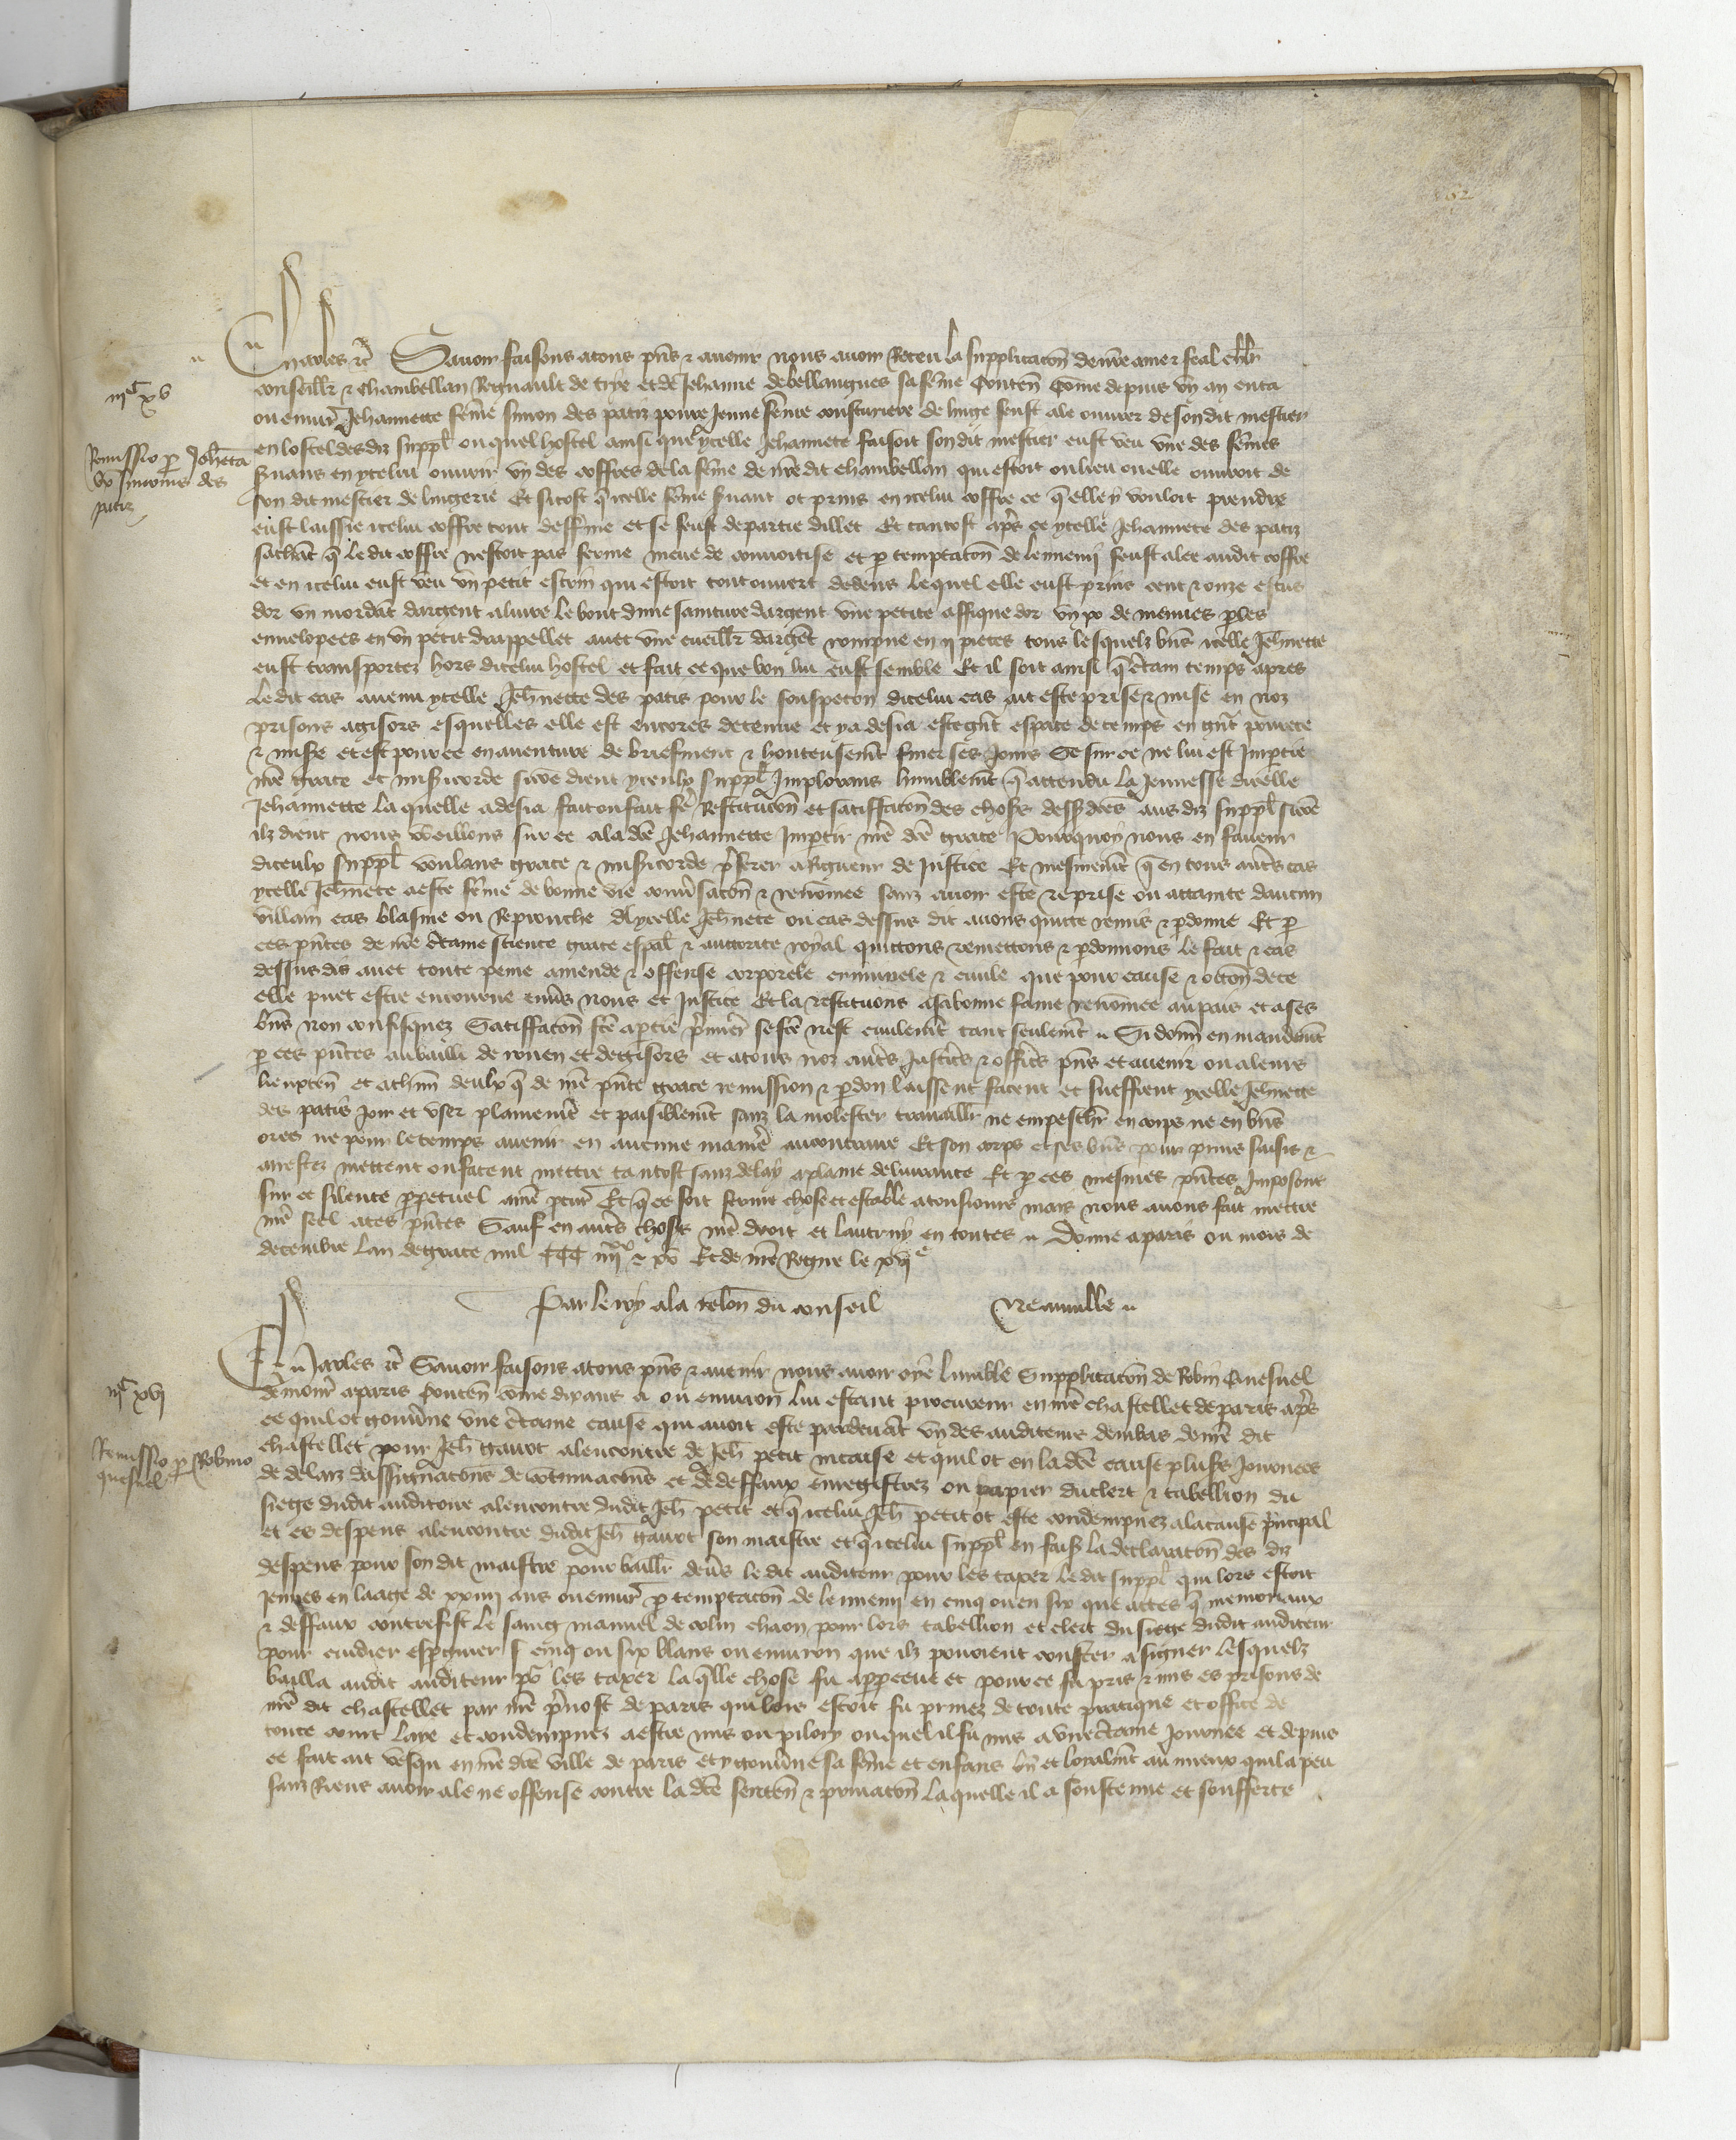 52
iijᶜ xv
Remissio p Joh̄eta
ux̄ Simonis des
patiz
Charles ⁊c̄ Savoir faisons a tous p̄ns ⁊ avenir nous avoir Receu la supplicac̄on de nr̄e ame ⁊ feal chl̄r
conseillr̄ ⁊ chambellan Regnault de trye et de Jehanne de bellangues sa fēme Conten̄ Cōme depuis vn an enca
ou envir̄ Jehannette fēme Simon des patiz povre Jeune fēme cousturiere de linge feust alee ouvrer de son dit mestier
en lostel desdiz suppl̄ ou quel hostel ainsi que ycelle Jehannete faisoit son dit mestier eust veu vne des fēmes
s̄vans en ycelui ouvrir vn des coffres de la fēme de nr̄e dit chambellan qui estoit ou lieu ou elle ouvroit de
son dit mestier de lingerie Et si tost q̄ icelle fēme s̄vant ot prins en icelui coffre ce q̄ elle y vouloit prendre
eust laissie icelui coffre tout deffermé et se feust departie dillec Et tantost ap̄s ce ycelle Jehannete des patiz
sachāt q̄ le dit coffre nestoit pas ferme meue de convoitise et p temptac̄on de lennemi feust alee audit coffre
et en icelui eust veu vn petit escrin qui estoit tout ouvert dedens lequel elle eust prins cent ⁊ onze escus
dor vn mordāt dargent a livre le bout dune sainture dargent vne petite affique dor vn po de menues ples
envelopees en vn petit drappellet avec vne cueillr̄ dargēt rompue en ij pieces tous lesquelz bn̄s icelle Jeh̄nette
eust transportez hors dicelui hostel et fait ce que bon lui eust semble Et il soit ainsi q̄ c̄tain temps apres
le dit cas avenu ycelle Jeh̄nette des patis pour le souspecon dicelui cas ait este prise ⁊ mise en noz
prisons a gisors esquelles elle est encores detenue et y a desia este gn̄t espace de temps en gn̄t povrete
⁊ misere et est pour ce en aventure de briefment ⁊ honteusemēt finer ses Jours Se sur ce ne lui est Impartie
nr̄e grace et mis̄icorde sicōe dient yceulx suppl̄ Implorans humblemēt q̄ attendu la Jeunesse dicelle
Jehannette la quelle a desia fait ou fait fe Restituc̄on et satiffac̄on des choses dess̄ dc̄es aus diz suppl̄ sicōe
ilz dient nous vueillons sur ce a la dc̄e Jehannette Impartir nr̄e dc̄e grace Pour quoy nous en faveur
diceulx suppl̄ voulans grace ⁊ mis̄icorde p̄ferer a Rigueur de Justice Et mesmemēt q̄ en tous aut̄s cas
ycelle Jeh̄nete a este fēme de bonne vie conv̄sac̄on ⁊ renōmee sanz avoir este reprise ou attainte daucun
villain cas blasme ou Reprouche A ycelle Jeh̄nete ou cas dessus dit avons quitte remis ⁊ pdonne Et p
ces pn̄tes de nr̄e c̄taine science grace espal̄ ⁊ auctorite royal quittons remettons ⁊ pdonnons le fait ⁊ cas
dessus dis avec toute peine amende ⁊ offense corporele criminele ⁊ civile que pour cause ⁊ occōn de ce
elle puet estre encourue env̄s nous et Justice Et la restituons a sa bonne fame renōmee au pais et a ses
bn̄s non confisquez Satiffac̄on fc̄e a ptie p̄mier̄ se fc̄e nest civilemēt tant seulemēt Si donn̄ en mandemēt
p ces pn̄tes au bailli de rouen et de gisors et a tous noz aut̄s Justic̄s ⁊ offic̄s p̄ns et avenir ou a leurs
lieuxten̄ et a ch̄un deulx q̄ de nr̄e pn̄te grace remission ⁊ pdon laissent facent et sueffrent ycelle Jeh̄nette
des patis Joir et vser plainemēt et paisiblemēt sanz la molester travaillr̄ ne empeschr̄ en corps ne en bn̄s
ores ne pour le temps avenir en aucune manier̄ au contraire Et son corps et ses bn̄s pour ce prins saisis ⁊
arrestez mettent ou facent mettre tantost sanz delay a plaine delivrance Et p ces mesmes pn̄tes Imposons
sur ce silence ppetuel a nr̄e pcur̄ Et q̄ ce soit ferme chose et estable a tousiours mais nous avons fait mettre
nr̄e seel a ces pn̄tes Sauf en aut̄s choses nr̄e droit et lautruy en toutes Donne a paris ou mois de
decembre lan de grace mil CCC iiij^xx ⁊ xv Et de nr̄e Regne le xvj^e
Par le roy a la relōn du conseil Neauville
iijᶜ xvi
Remissio p Robino
quesnel
Charles ⁊c̄ Savoir faisons a tous p̄ns ⁊ avenir nous avoir oye lumble Supplicac̄on de Robin Quesnel
dem̄our̄ a paris Conten̄ cōme dix ans a ou environ lui estant procureur en nr̄e chastellet de paris ap̄s
ce quil ot gouv̄ne vne c̄taine cause qui avoit este pardevāt vn des auditeurs denbas de nr̄e dit
chastellet pour Jeh̄ Gavot alencontre de Jeh̄ petit en cause et quil ot en la dc̄e cause pluss̄ Journees
de delaiz dassignac̄ons de cōtinuac̄ons et de deffaux enregistrez ou papier du clerc ⁊ tabellion du
siege dudit auditoire alencontre dudit Jeh̄ petit et q̄ icelui Jeh̄ petit ot este condempnez a la cause p̄ncipal
et es despens alencontre dudit Jeh̄ Gavot son maistre et q̄ icelui suppl̄ en fais̄ la declarac̄on des diz
despens pour son dit maistre pour baillr̄ dev̄s le dit auditeur pour les taxer le dit suppl̄ qui lors estoit
Jeunes en laage de xxiiij ans ou envir̄ p temptac̄on de lennemi en cinq ou en six que actes q̄ memoriaux
⁊ deffaux contrefist le saing manuel de colin chaon pour lors tabellion et clerc du siege dudit auditeur
pour cuidier espgnier cinq ou six blans ou environ que ilz povoient couster a signer lesquelz
bailla audit auditeur po les taxer la q̄lle chose fu appceue et pour ce fu pris ⁊ mis es prisons de
nr̄e dit chastellet par nr̄e p̄vost de paris qui lors estoit fu privez de toute pratique et office de
toute court laye et condempnez a estre mis ou pilory ou quel il fu mis a vne c̄taine Journee et depuis
ce fait ait vesqu en nr̄e dc̄e ville de paris et y gouv̄ne sa fēme et enfans bn̄ et loyalmēt au mieux quil a peu
sanz Riens avoir ale ne offense contre la dc̄e senten̄ ⁊ privac̄on Laquelle il a soustenue et soufferte